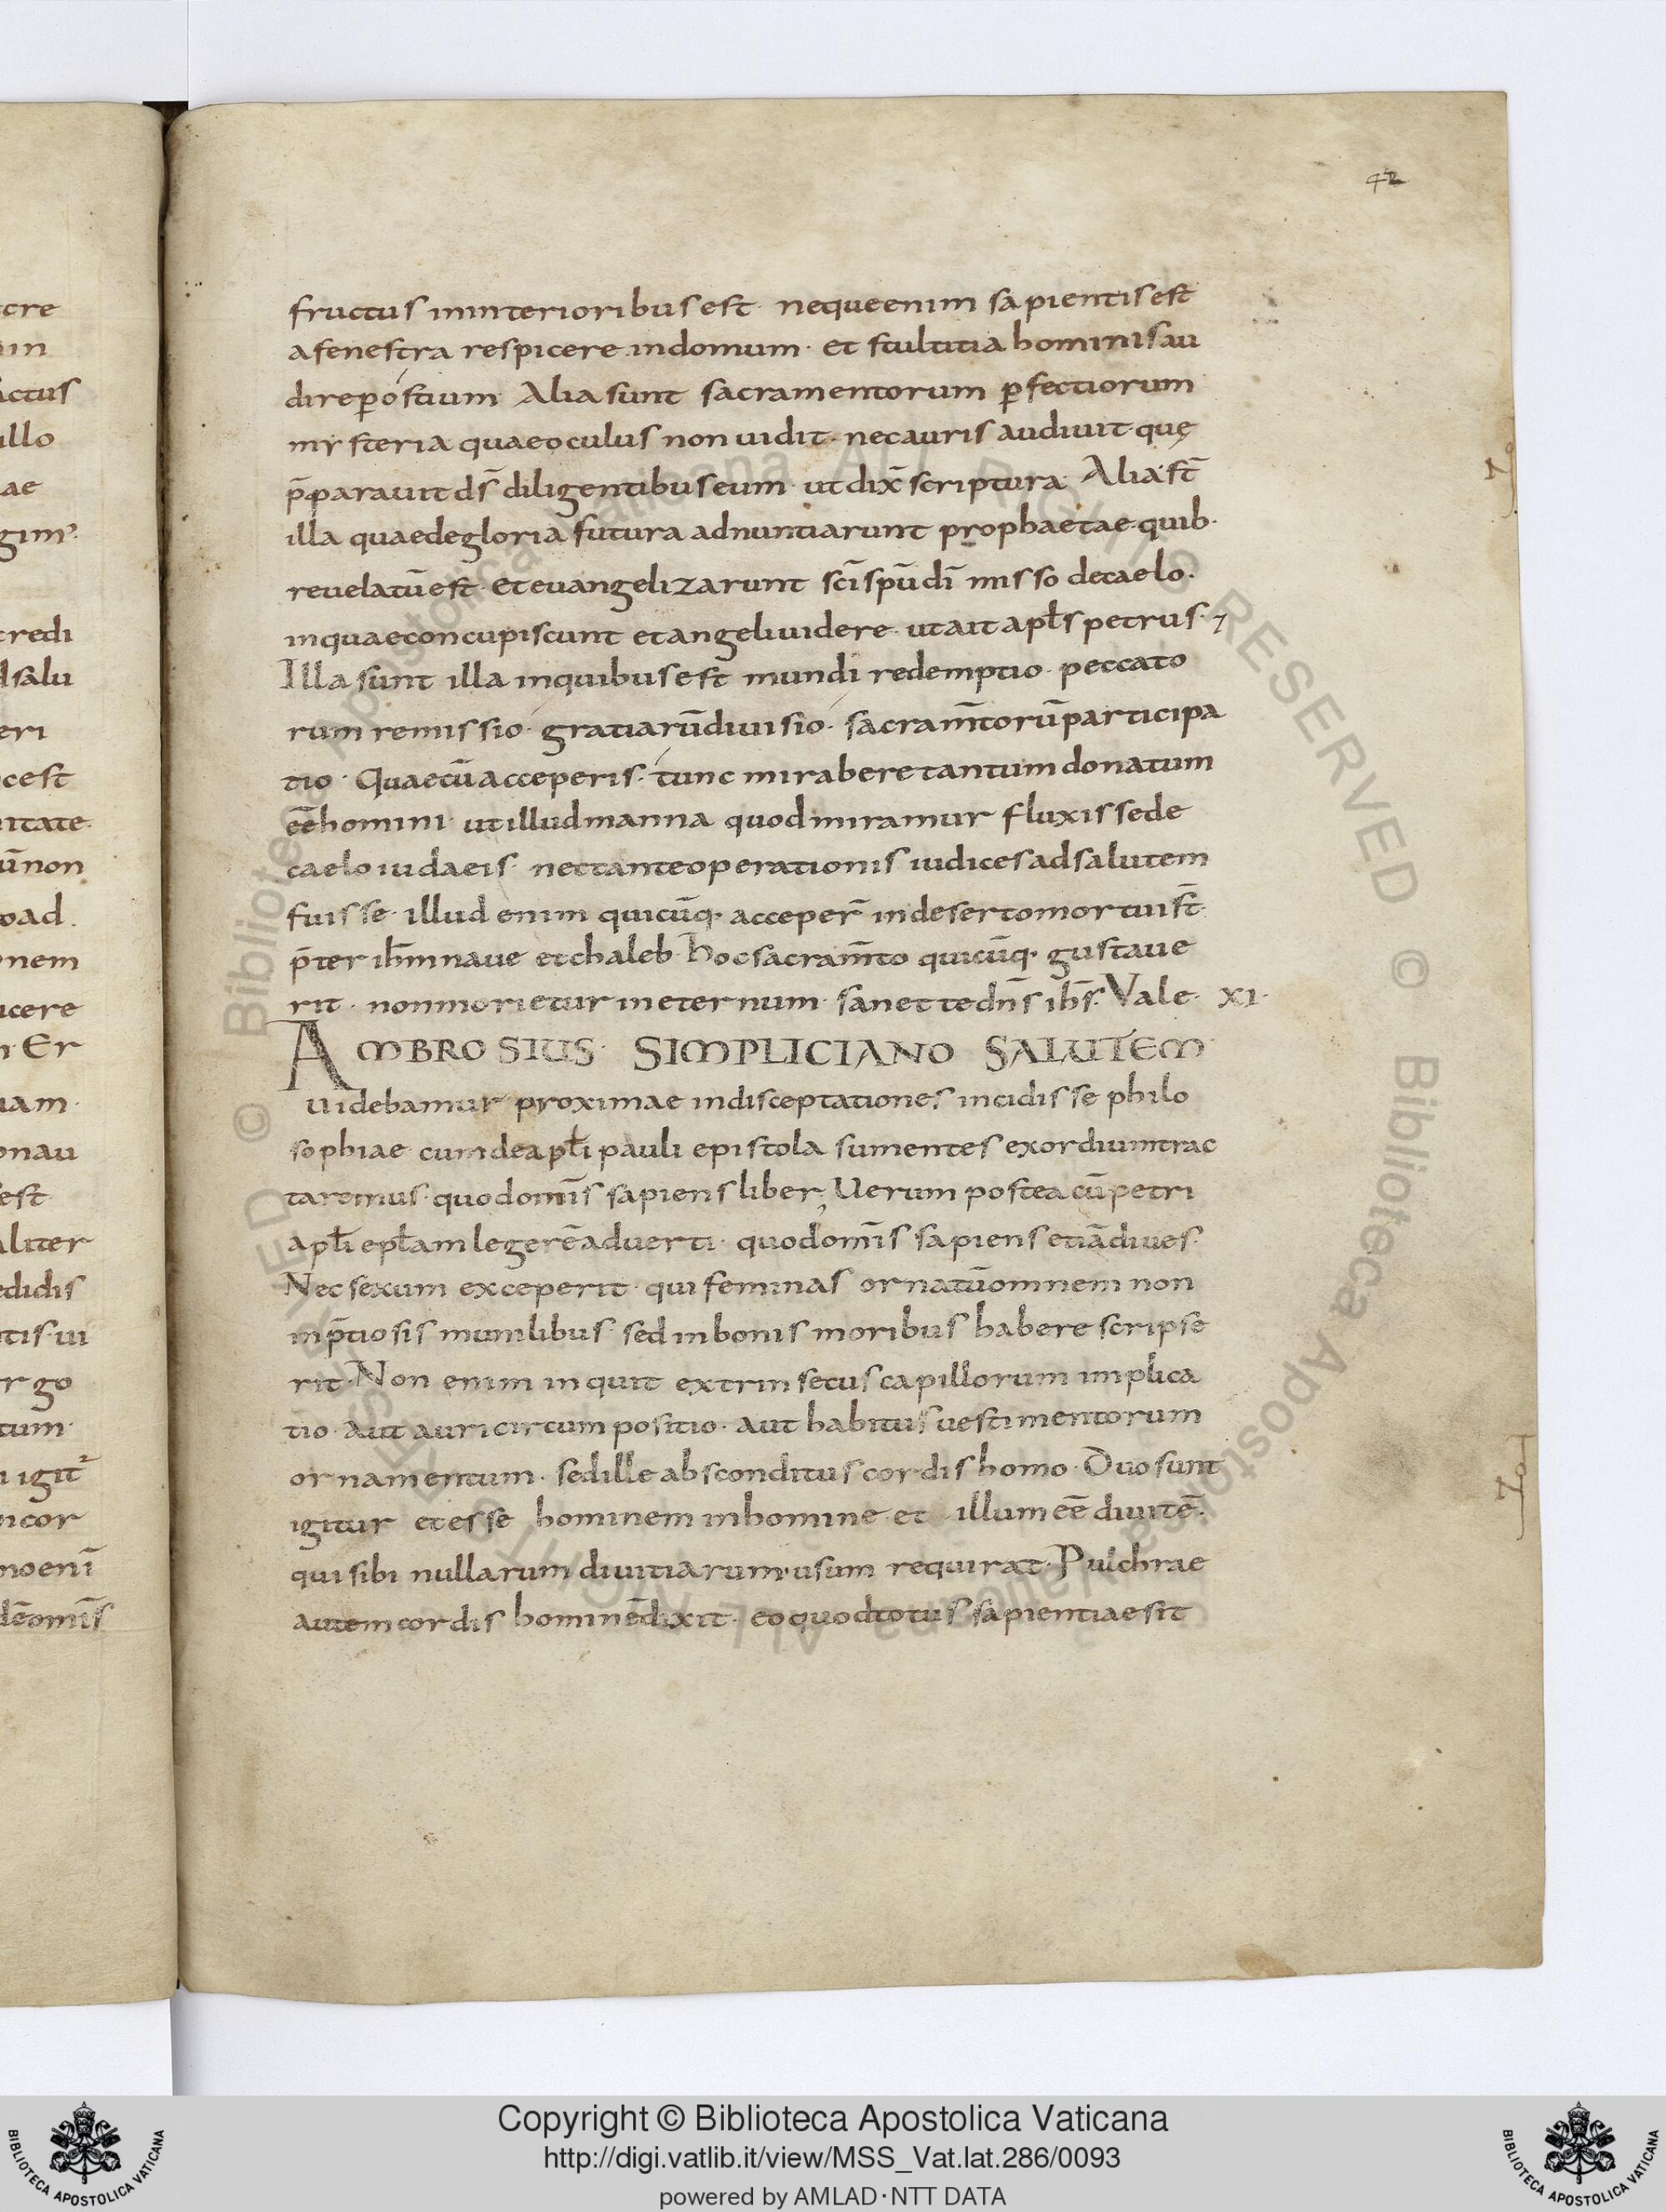 42
fructus ininterioribus est · neque enim sapientis est
a fenestra respicere in domum · et stultitia hominis au
dire p ostium · Alia sunt sacramentorum p̄fectiorum
mysteria quae oculus non uidit · nec auris audiuit · quę
p̄parauit d̄s diligentibus eum · ut dix̄ scriptura · Alia st̄
illa quae de gloria futura adnuntiarunt prophaetae · quib·
reuelatū est · et euangelizarunt sc̄i sp̄u dī misso de caelo ·
in quae concupiscunt et angeli uidere · ut ait apl̄s petrus · 7
Illa sunt illa in quibus est mundi redemptio · peccato
rum remissio · gratiarū diuisio · sacram̄torū participa
tio · Quae cū acceperis · tunc mirabere tantum donatum
eē homini · ut illud manna quod miramur fluxisse de
caelo iudaeis · nec tante operationis iudices ad salutem
fuisse · illud enim quicūq· acceper̄ in deserto mortui st̄ ·
p̄ter ih̄m naue et chaleb · Hoc sacram̄to quicūq· gustaue
rit · non morietur in eternum · sanet te dn̄s ih̄s · Vale · XI ·
AMBROSIUS · SIMPLICIANO SALUTEM
Uidebamur proximae in disceptationes incidisse philo
sophiae cum de apl̄i pauli epistola sumentes exordium trac
taremus · quod om̄is sapiens liber; Uerum postea cū petri
apl̄i epl̄am legerē aduerti · quod om̄is sapiens etiā diues ·
Nec sexum exceperit · qui feminas ornatū omnem non
in p̄tiosis munilibus · sed in bonis moribus habere scripse
rit · Non enim inquit extrinsecus capillorum implica
tio · aut auri circumpositio · aut habitus uestimentorum
ornamentum · sed ille absconditus cordis homo · Duo sunt
igitur et esse hominem in homine · et illum eē diuitē ·
qui sibi nullarum diuitiarum usum requirat · Pulchrae
autem cordis hominē dixit · eo quod totus sapientiae sit
cre
in
ctus
illo
ae
gim²
credi
dsalu
eri
cest
nitate
ū non
oad
nem
icere
Er
uam
onau
est
aliter
edidis
tis · ui
rgo
tum
igit²
icor
no enī
dē om̄is
© Biblioteca Apostolica Vaticana ALL RIGHTS RESERVED © Biblioteca Apostolica Vaticana ALL RIGHTS RESERVED
Copyright © Biblioteca Apostolica Vaticana
http://digi.vatlib.it/view/MSS_Vat.lat.286/0093
powered by AMLAD·NTT DATA
BIBLIOTECA APOSTOLICA VATICANA
BIBLIOTECA APOSTOLICA VATICANA